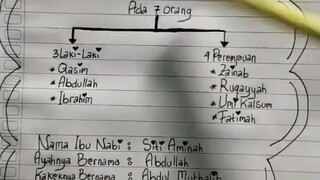 Ada 7 Orang
3 Laki-Laki
* Qasim
* Abdullah
* Ibrahim
4 Perempuan
* Zainab
* Ruqayyah
* Umi Kalsum
* Fatimah
Nama Ibu Nabi : Siti Aminah
Ayahnya Bernama : Abdullah
Kakeknya Bernama : Abdul Muthalib